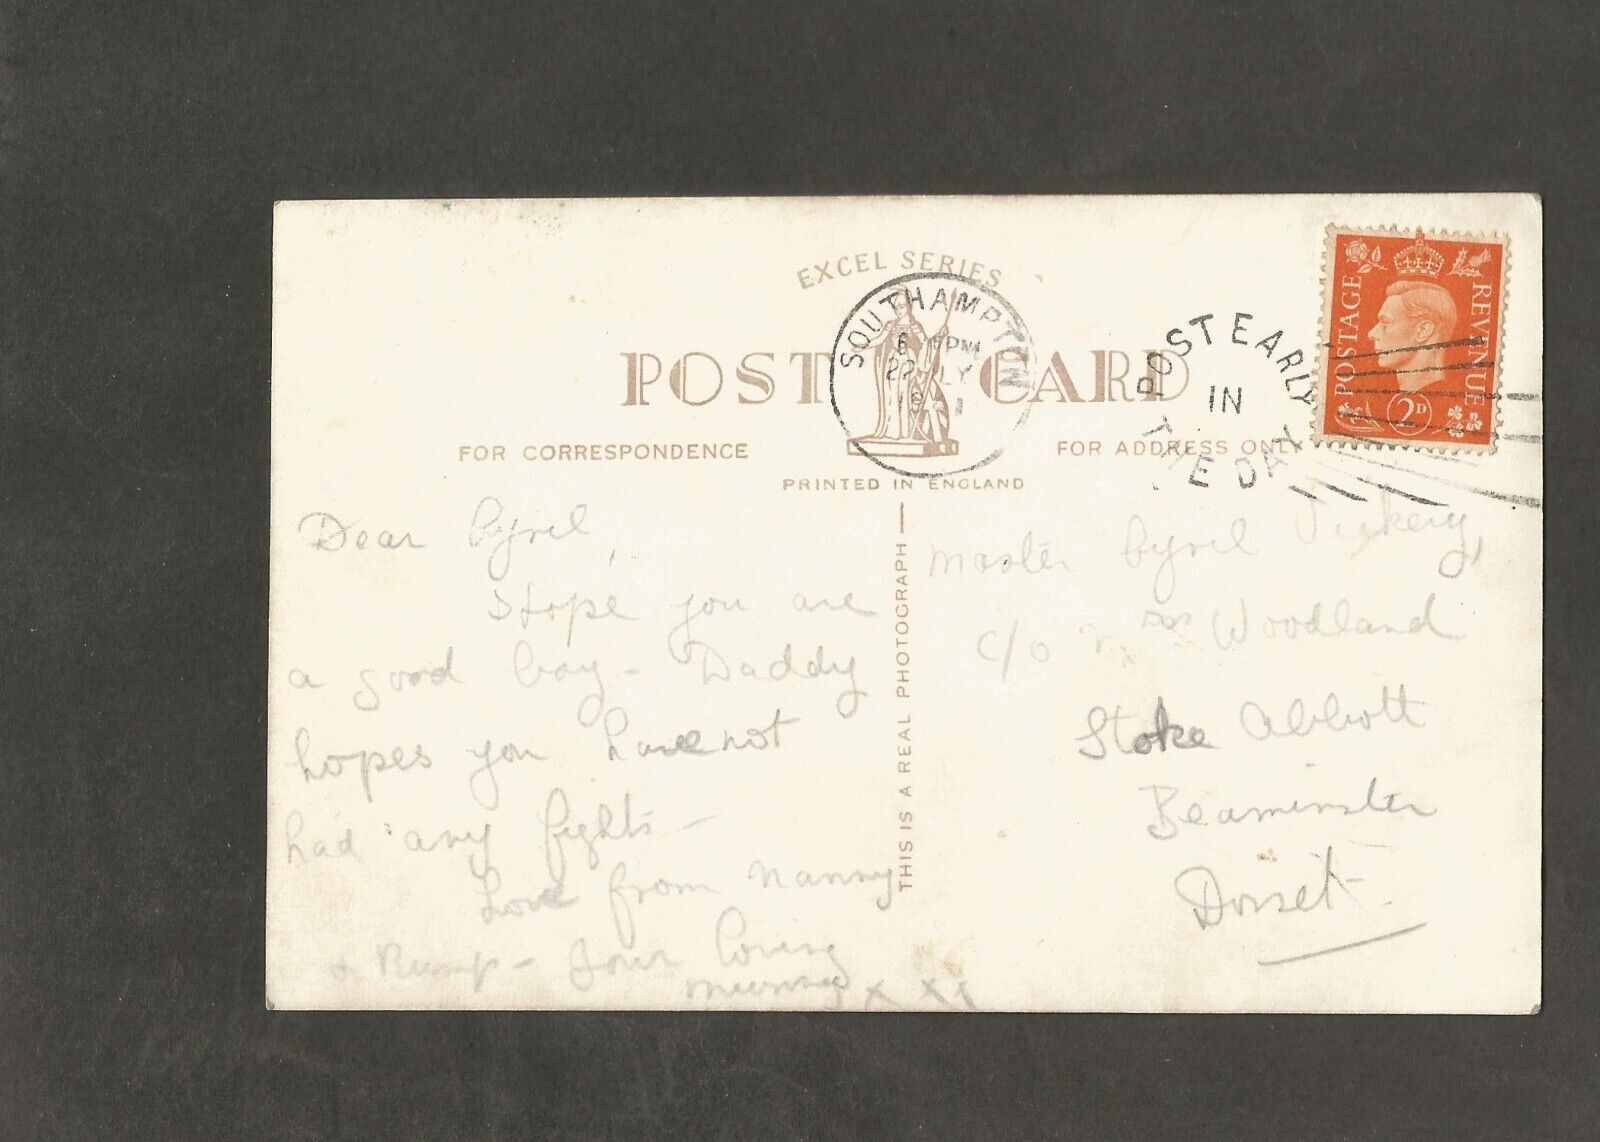 EXCEL SERIES
POST CARD
FOR CORRESPONDENCE
FOR ADDRESS ONLY
PRINTED IN ENGLAND
THIS IS A REAL PHOTOGRAPH
SOUTHAMPTON
PM
22 LY
19 1
POST EARLY
IN
THE DAY
POSTAGE REVENUE
2D
Dear Cyril,
I Hope you are
a good boy - Daddy
hopes you have not
had any fights -
Love from Nanny
& Bump - Your loving
Mummy x x x
Master Cyril Vickery,
c/o Mrs Woodland
Stoke Abbott
Beaminster
Dorset